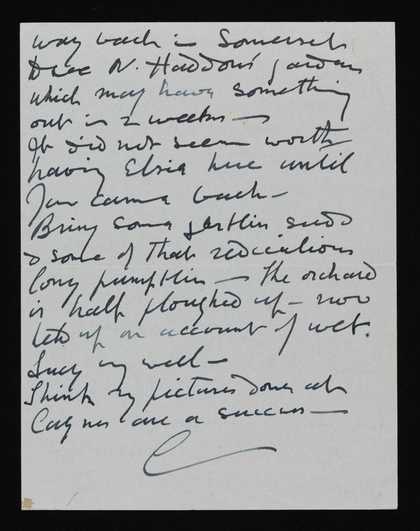 way back in Somerset
N. Haddon's garden
which may have something
out in 2 weeks —
It did not seem worth
having Elsie here until
you came back —
Bring some seeds
& some of that
long pumpkin — The orchard
is half ploughed up — now
held up on account of wet.
Lucy very well —
I think my pictures done at
are a success —